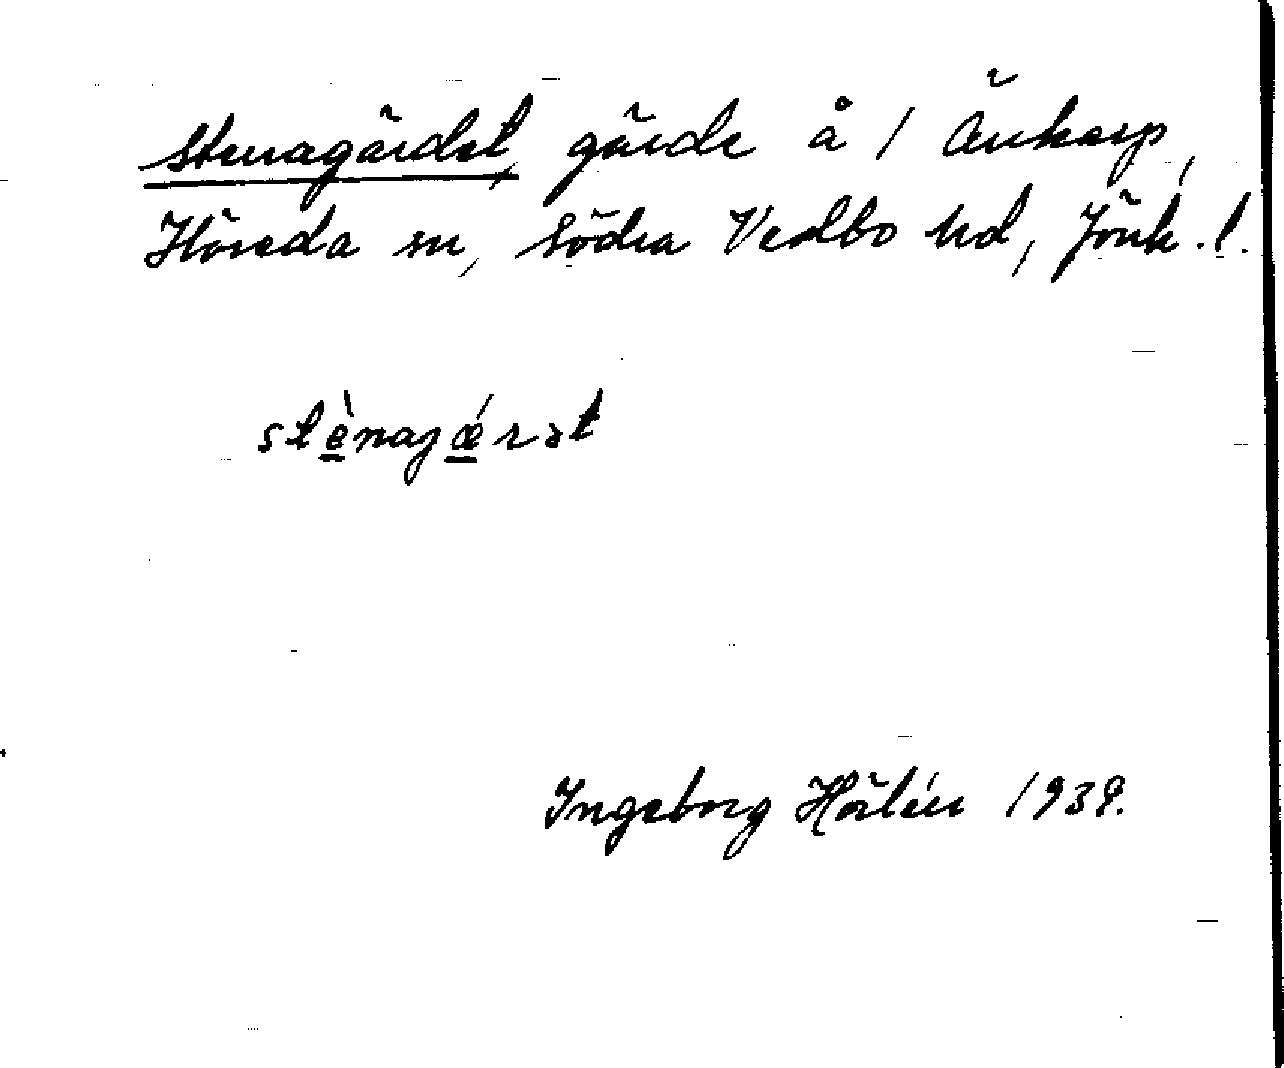 Stenagärdet, gärde å 1 Änkarp,
Höreda sn, Södra Vedbo hd, Jönk. l.
stènajǽrət
Ingeborg Hörlén 1939.